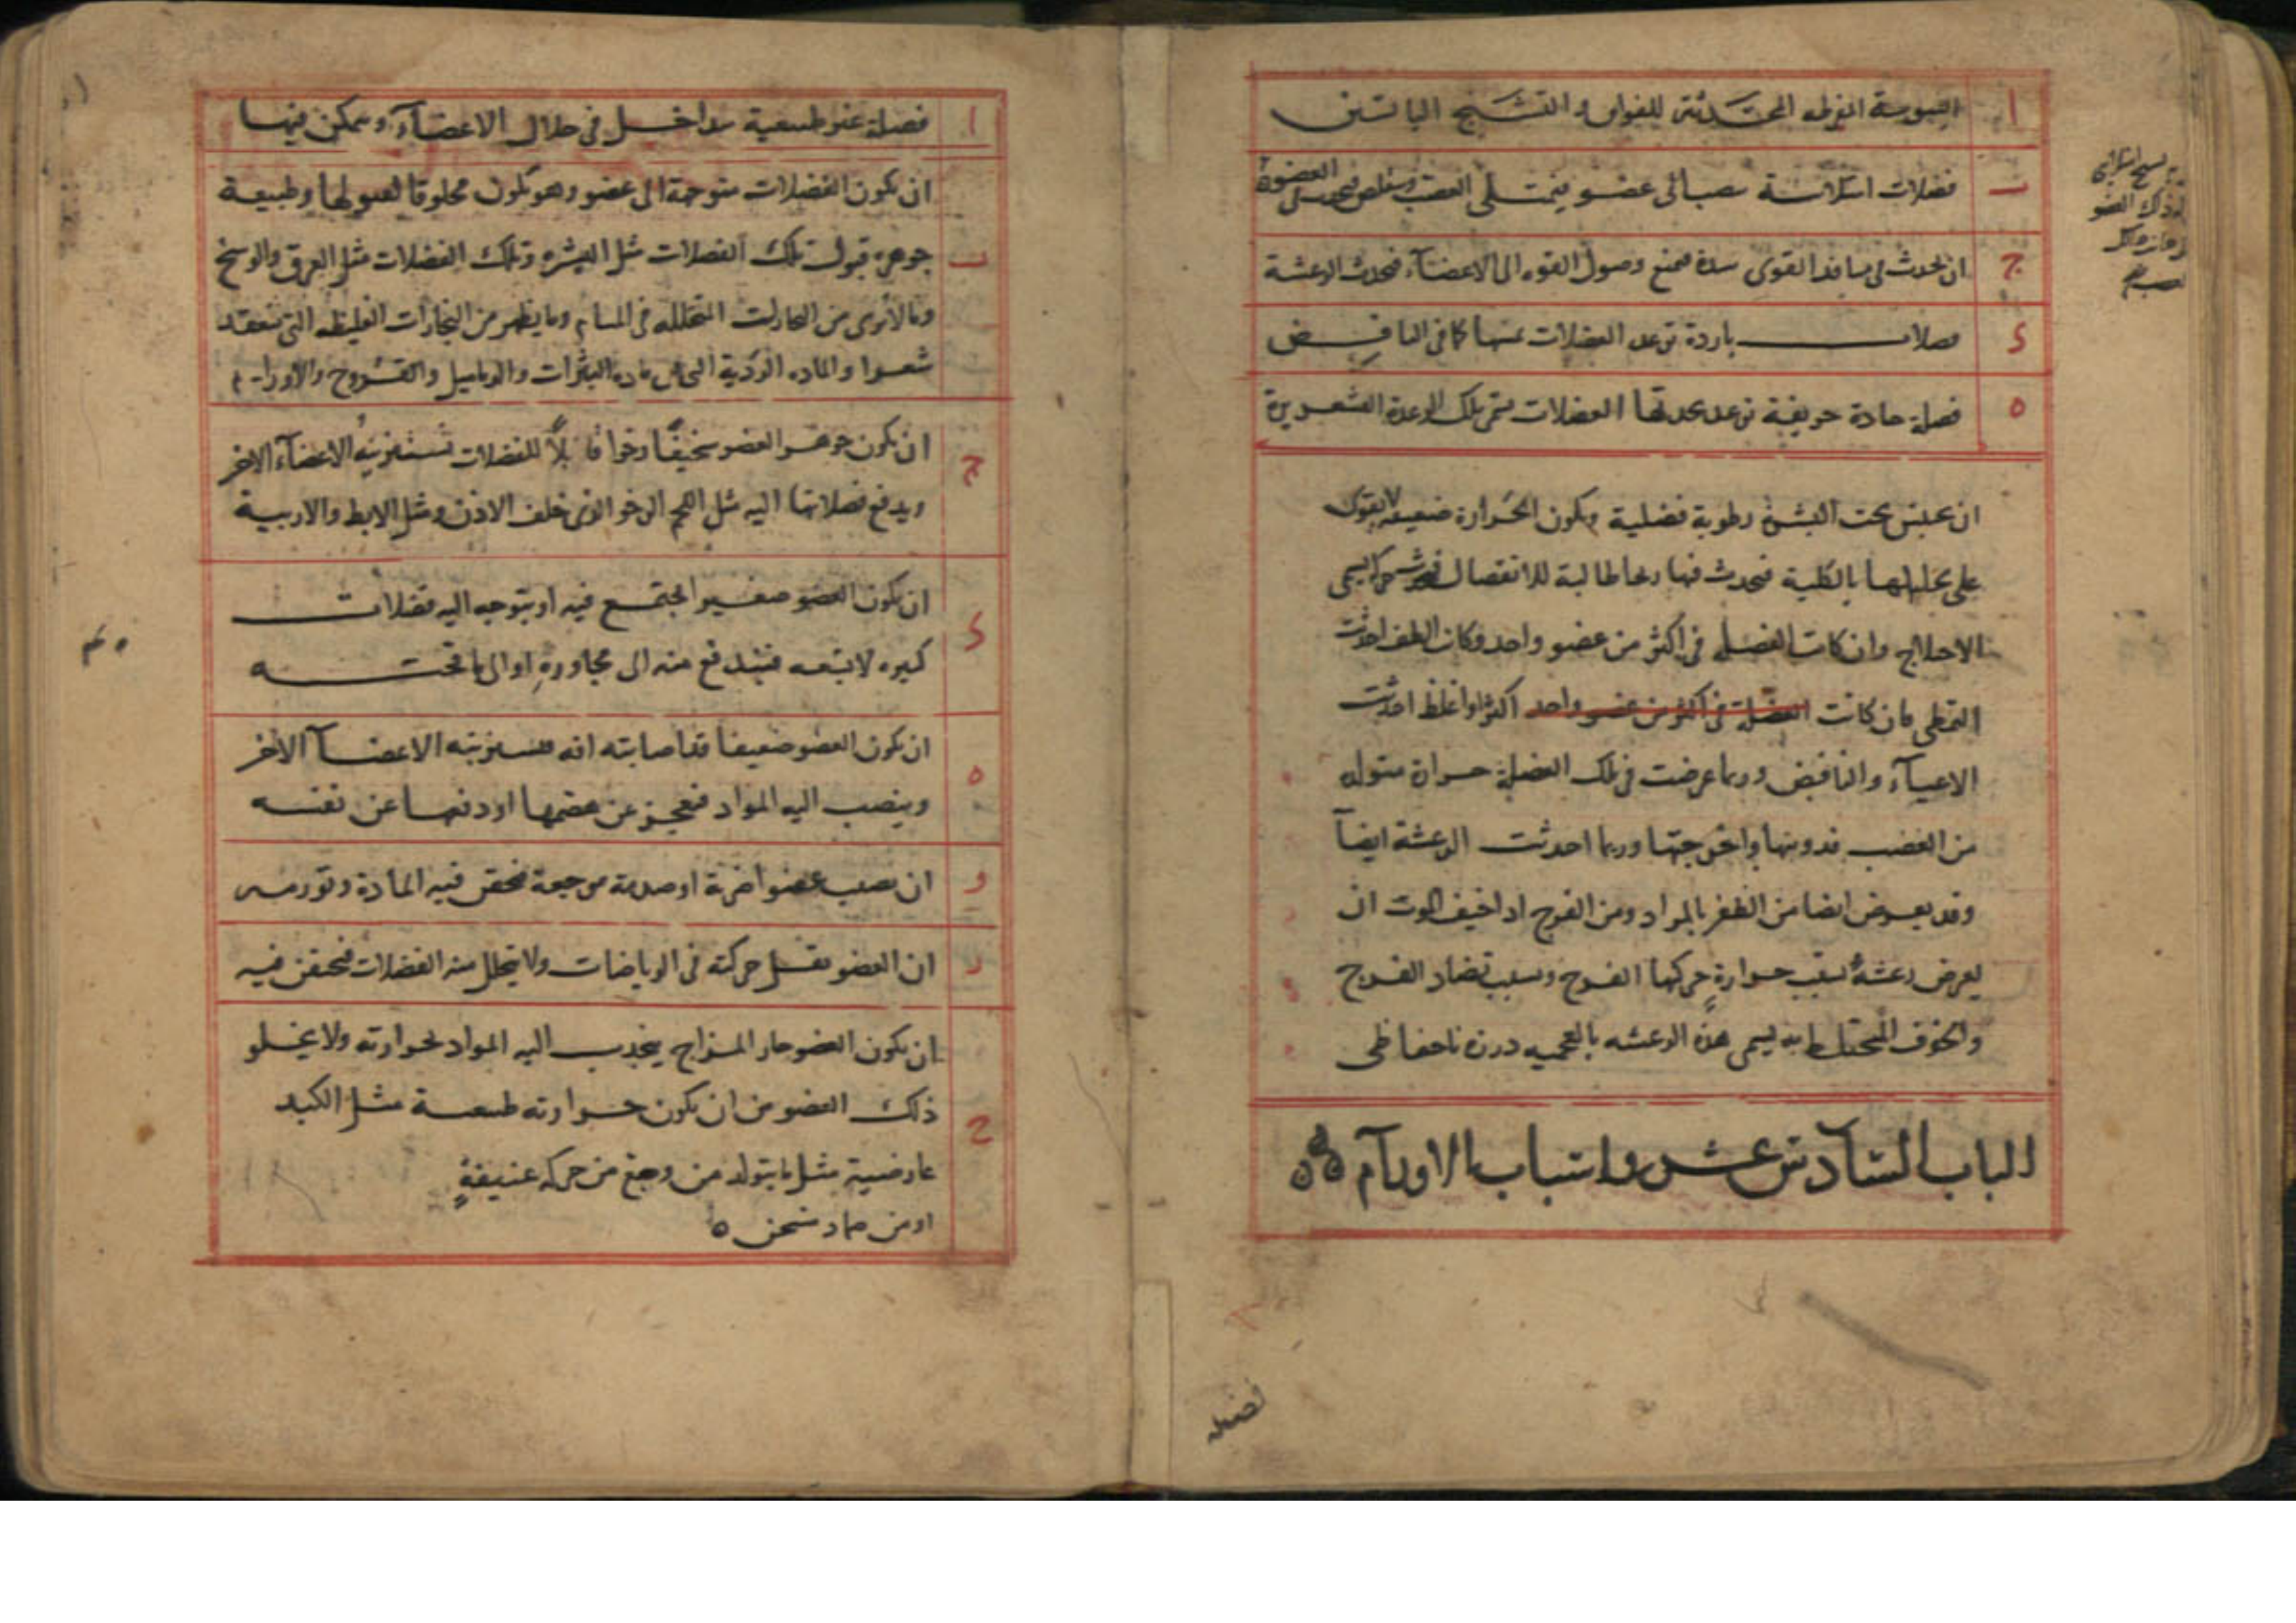 ا اليبوسة المفرطه المحدثة للفواق والتشنج اليابسين
ب فضلات تنصب الى عضو فيمتلى العصب
ج ان يحدث فى منافذ القوى سدة تمنع وصول القوه الى الاعضآء فيحدث الرعشة
د فضلات باردة ترعد العضلات كما فى النافض
ه فضلة حادة حريفية ترعد بحدتها العضلات تسمى تلك الرعدة القشعريرة
ان يحتبس تحت البشرة رطوبة فضلية ويكون الحرارة ضعيفة لا يقوى
على تحليلها بالكلية فيحدث فيها رياحا طالبة للانفصال
الاختلاج وان كانت الفضلة فى اكثر من عضو واحد وكان الطف احدثت
التمطى فان كانت الفضلة فى اكثر من عضو واحد اكثر او اغلظ احدثت
الاعيآء والنافض وربما عرضت فى تلك الفضلة حرارة متولده
من الغضب فذوبتها واخرجتها وربما احدثت الرعشة ايضآ
وقد يعرض ايضا من الظفر بالمراد ومن الفرح اذا خيف الفوت ان
يعرض رعشة بسبب حرارة حركها الفرح وبسبب تضاد الفرح
والخوف المختلط به يسمى هذه الرعشه بالعجميه
الباب السادس عشر واسباب الاورآم
فضله
ا فضلة غير طبيعية تداخل فى خلال الاعضآء ويمكن فيها
ان يكون الفضلات متوجهة الى عضو وهو يكون مخلوقا لقبولها وطبيعة
ب جوهره قبول تلك الفضلات مثل البشره وتلك الفضلات مثل العرق والوسخ
وما لا يرى من البخارات المتحلله فى المسام وما يظهر من البخارات الغليظه التى تنعقد
شعرا والماده الردية التى هى ماده البثرات والدماميل والقروح والاورام
ج ان يكون جوهر العضو سخيفا رخوا قابلا للفضلات الاعضآء الاخر
ويدفع فضلاتها اليه مثل اللحم الرخو الذى خلف الاذن ومثل الابط والاربية
د ان يكون العضو صغيرا يجتمع فيه او يتوجه اليه فضلات
كثيره لا تسعه فيندفع منه الى مجاوره او الى ما تحته
ه ان يكون العضو ضعيفا قد اصابته افة الاعضآ الاخر
وينصب اليه المواد فيعجز عن هضمها او دفعها عن نفسه
و ان يصيب عضوا ضربة او صدمة موجعة فيحتقن فيه المادة وتورمه
ز ان العضو يقل حركته فى الرياضات ولا يتحلل منه الفضلات فيحتقن فيه
ان يكون العضو حار المزاج يجذب اليه المواد لحرارته ولا يخلو
ح ذلك العضو من ان يكون حرارته طبيعية مثل الكبد
عارضية مثل ما يتولد من وجع من حركه عنيفة
او من ضماد مسخن